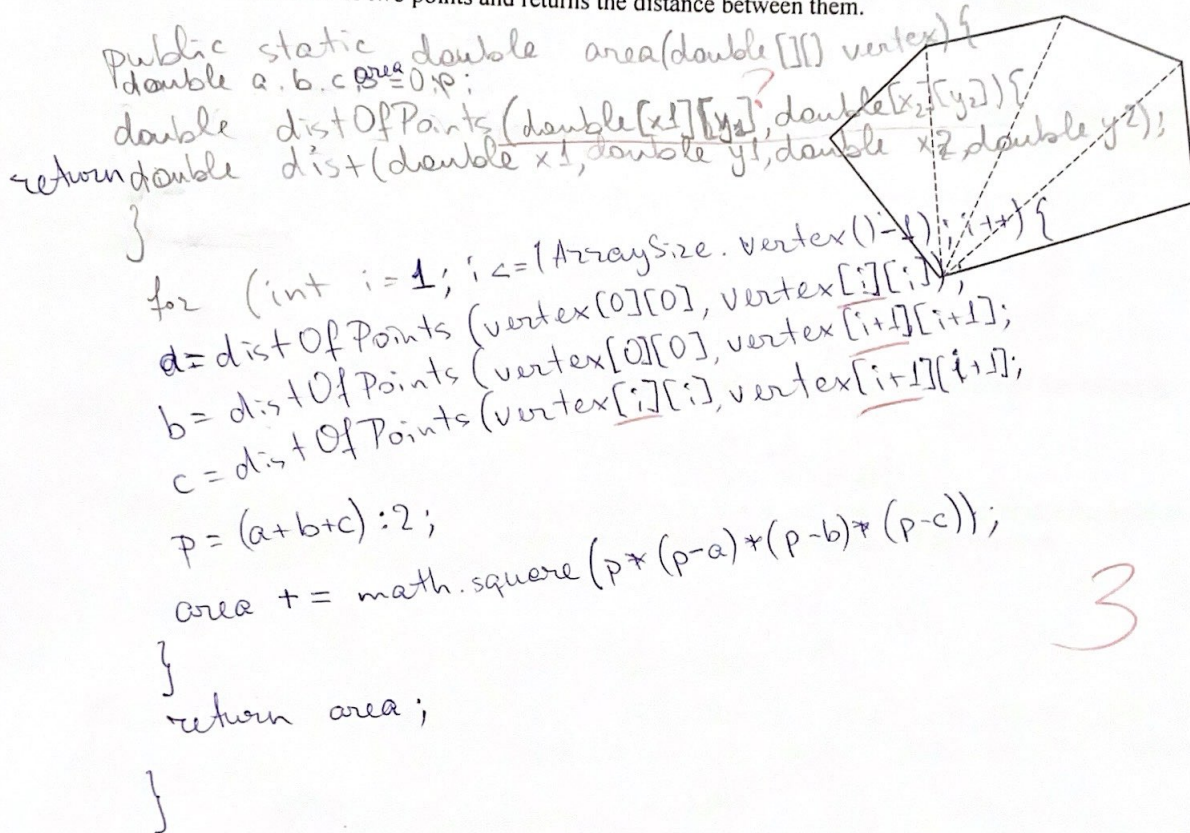 points and returns the distance between them.
public static double area(double[][] vertex){
double a.b.c, area=0,p;
double distOfPoints(double[x1][y1], double[x2][y2]){
return double dist(double x1, double y1, double x2, double y2);
}
for (int i=1; i<=(ArraySize.vertex()-1); i++){
a=distOfPoints(vertex[0][0], vertex[i][i]);
b= distOfPoints(vertex[0][0], vertex[i+1][i+1];
c= distOfPoints(vertex[i][i], vertex[i+1][i+1];
p=(a+b+c):2;
area += math.square(p*(p-a)*(p-b)*(p-c));
3
}
return area;
}